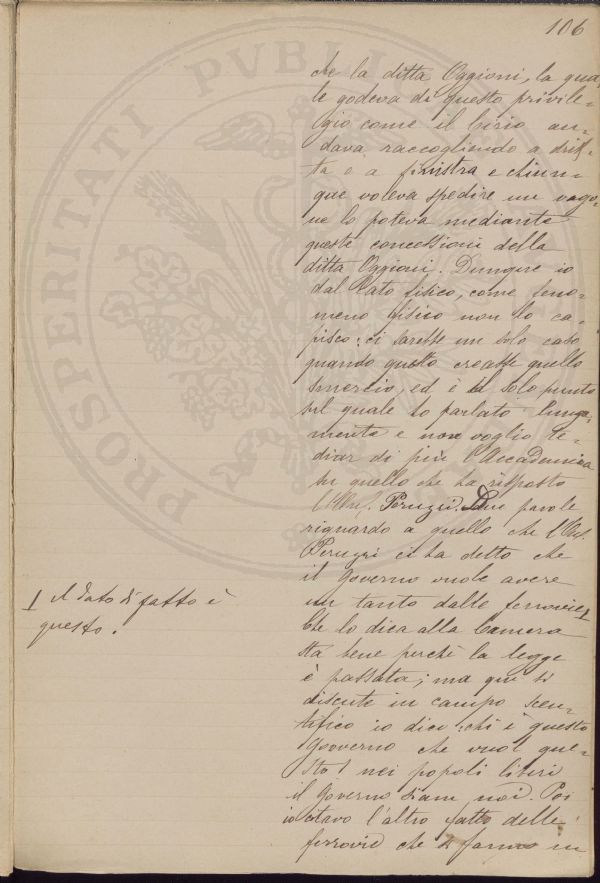 106
che la ditta Oggioni, la qua-
le godeva di questo privile-
gio come il Cirio an-
dava raccogliendo a drit-
ta e a sinistra e chiun-
que voleva spedire un vago-
ne lo poteva mediante
queste concessioni della
ditta Oggioni. Dunque io
dal lato fisico, come feno-
meno fisico non lo ca-
pisco: ci sarebbe un solo caso
quando questo creasse quello
smercio, ed è il solo punto
sul quale ho parlato lunga-
mente e non voglio te-
diar di più l'Accademia
su quello che ha risposto
l'On. Peruzzi. Due parole
riguardo a quello che l'On.
Peruzzi ci ha detto che
il Governo vuole avere
un tanto dalle ferrovie
Che lo dica alla Camera
sta bene perchè la legge
è passata; ma qui si
discute in campo scen-
tifico io dico: chi è questo
Governo che vuol que-
sto! nei popoli liberi
il Governo siam noi. Poi
io citavo l'altro fatto delle
ferrovie che si fanno in
Il dato di fatto è
questo.